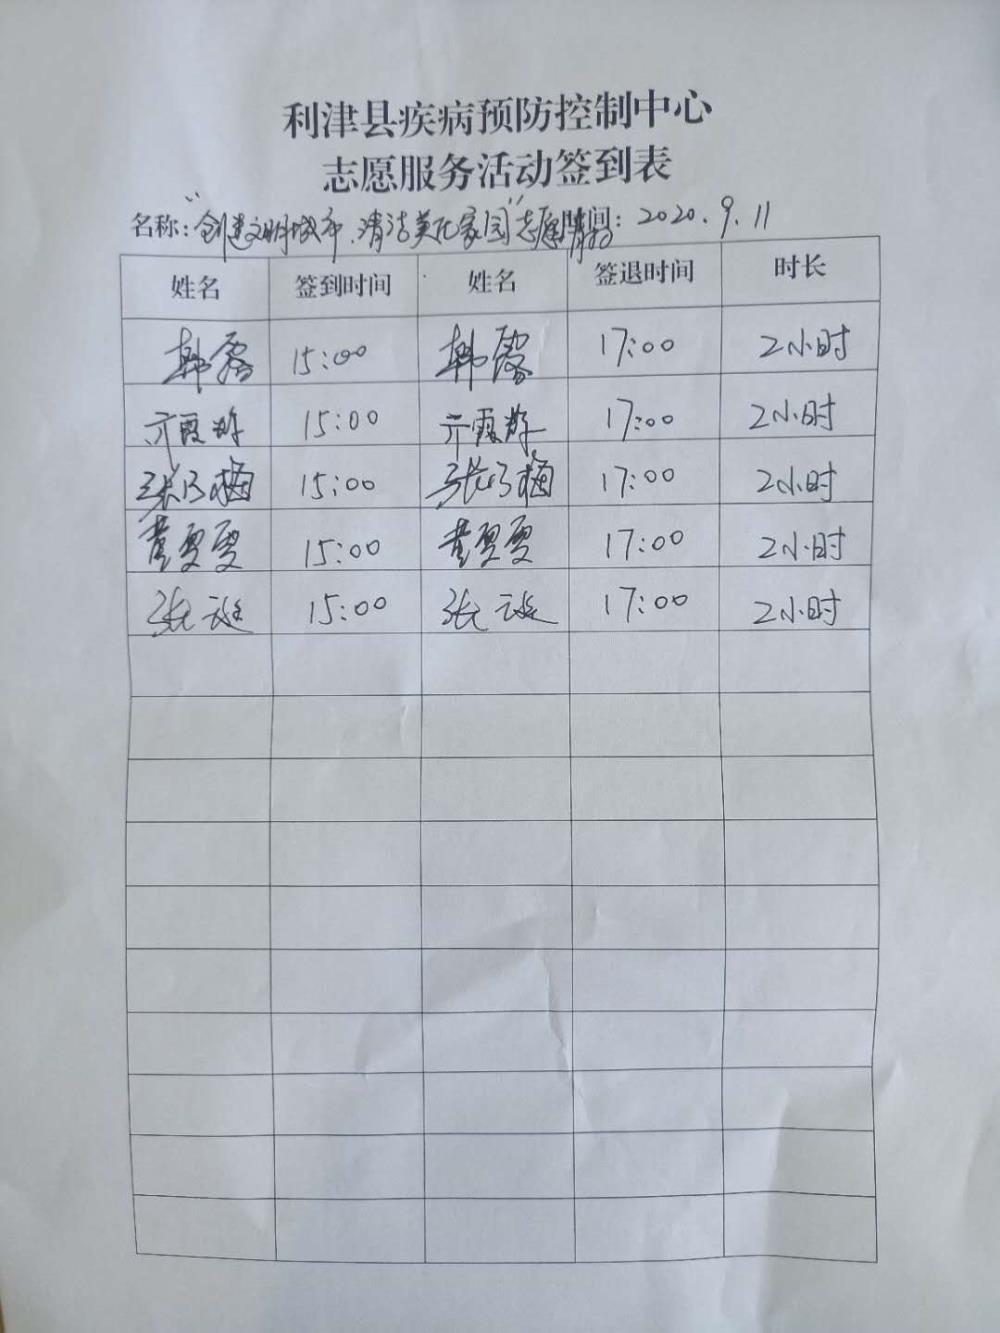 利津县疾病预防控制中心
志愿服务活动签到表
名称：“创建文明城市、清洁美化家园”志愿服务时间：2020.9.11
姓名 签到时间 姓名 签退时间 时长
韩露 15:00 韩露 17:00 2小时
15:00 17:00 2小时
张乃梅 15:00 张乃梅 17:00 2小时
黄雯雯 15:00 黄雯雯 17:00 2小时
张 15:00 张 17:00 2小时